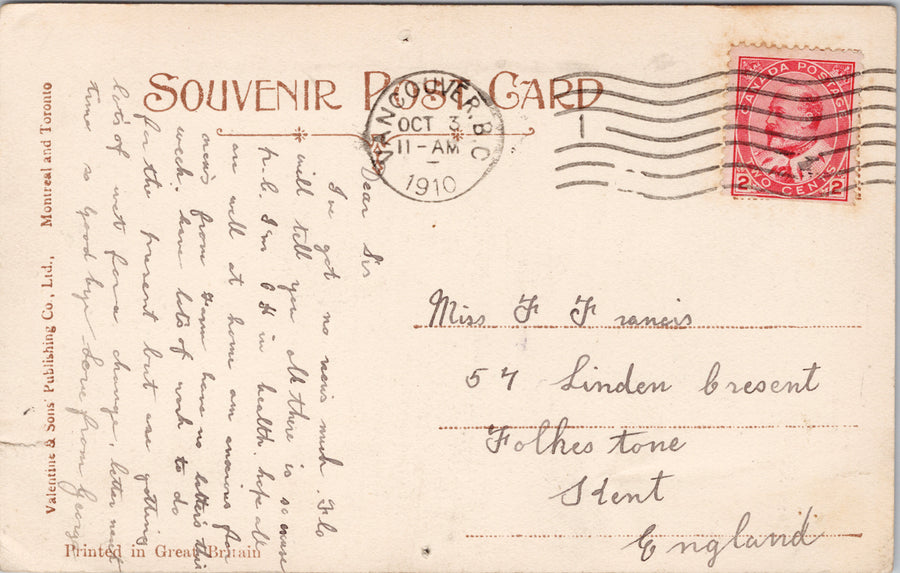 SOUVENIR POST CARD
VANCOUVER, B.C.
OCT 3
11-AM
1910
1
CANADA POSTAGE
2 TWO CENTS 2
Dear Sis
I've got no news much. Flo
will tell you all there is
I'm O K in health. hope all
are well at home am anxious for
news from home have no letters this
week. have lots of work to do
for the present but are getting
lots of wet for a change, letter next
time so good bye Love from George
Miss F Francis
57 Linden Cresent
Folkestone
Kent
England
Valentine & Sons' Publishing Co., Ltd., Montreal and Toronto
Printed in Great Britain